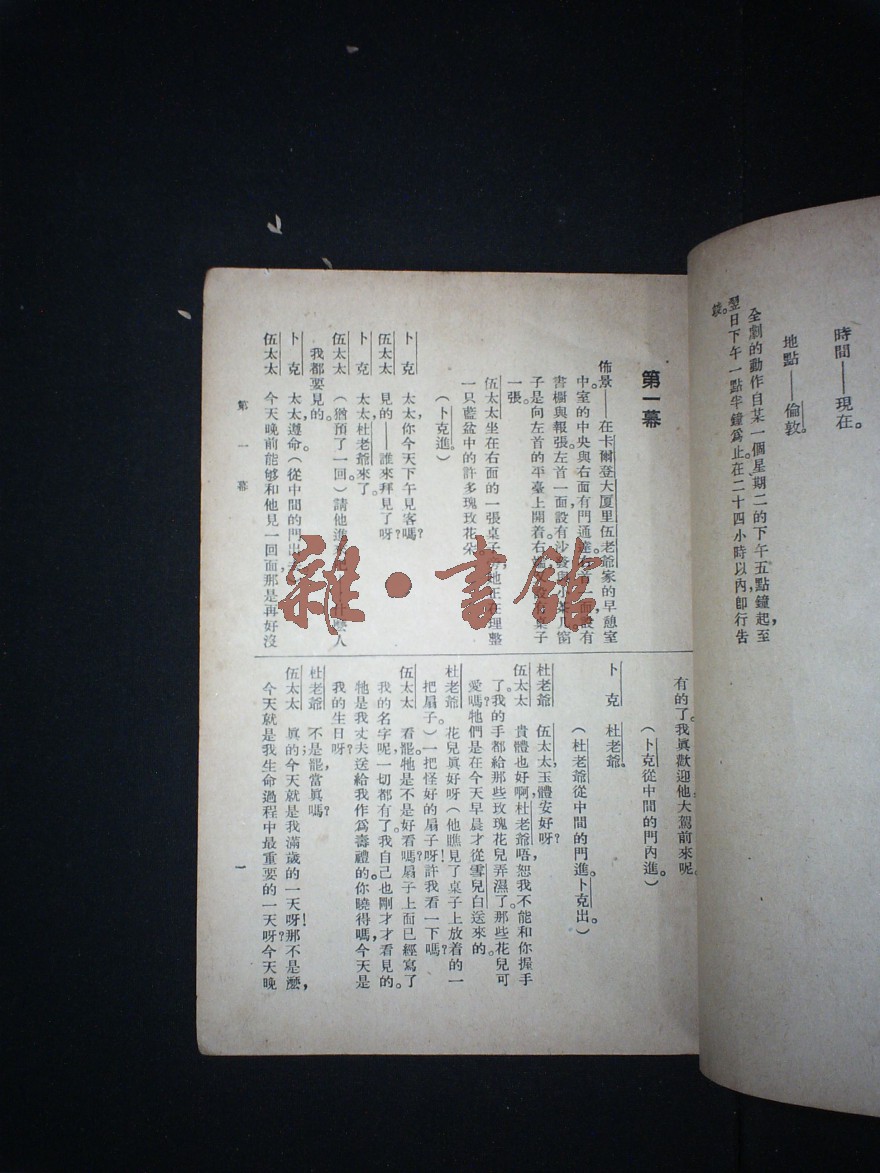 時間——現在。
地點——倫敦。
全劇的動作自某一個星期二的下午五點鐘起,至
翌日下午一點半鐘爲止,在二十四小時以內,卽行告
竣。
第一幕
佈景——在卡爾登大厦里伍老爺家的早憩室
中。室的中央與右面有門通
書櫃與報張。左首一面,設有沙發與小茶几。窗
子是向左首的平臺上開着。右
一張。
伍太太坐在右面的一張桌子旁,她正在理整
一只藍盆中的許多瑰玫花朵。
(卜克進。)
卜 克 太太,你今天下午見客嗎?
伍太太 見的——誰來拜見了呀?
卜 克 太太,杜老爺來了。
伍太太 (猶預了一回)請他進 什麼人
我都要見的。
卜 克 太太,遵命。(從中間的門出
伍太太 今天晚前能够和他見一回面,那是再好沒
有的了。我眞歡迎他大駕前來呢。
(卜克從中間的門內進。)
卜 克 杜老爺。
(杜老爺從中間的門進。卜克出。)
杜老爺 伍太太,玉體安好呀?
伍太太 貴體也好啊,杜老爺?唔,恕我不能和你握手
了。我的手都給那些玫瑰花兒弄濕了。那些花兒可
愛嗎?牠們是在今天早晨才從雪兒白送來的。
杜老爺 花兒眞好呀!(他瞧見了桌子上放着的一
把扇子。)一把怪好的扇子呀!許我看一下嗎?
伍太太 看罷。牠是不是好看嗎?扇子上面已經寫了
我的名字呢,一切都有了。我自己也剛才才看見的。
牠是我丈夫送給我作爲壽禮的。你曉得嗎,今天是
我的生日呀?
杜老爺 不是罷?當眞嗎?
伍太太 眞的;今天就是我滿歲的一天呀!那不是麼,
今天就是我生命過程中最重要的一天呀?今天晚
第一幕
一
雜·書館